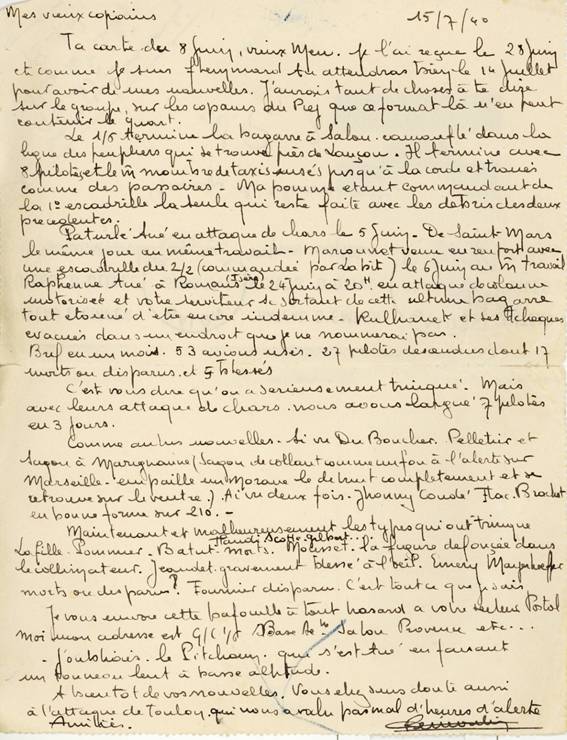 Mes vieux copains 15/7/40
Ta carte du 8 Juin, vieux Meu. Je l'ai reçue le 28 Juin
et comme je suis flemmard tu attendras bien le 14 Juillet
pour avoir de mes nouvelles. J'aurais tant de choses à te dire
sur le groupe, sur les copains du Pey que ce format là n'en peut
contenir le quart.
Le 1/5 termine la bagarre à Salon. camouflé dans la
ligne des peupliers qui se trouve près de Lançon. Il termine avec
8 pilotes et le m nombre de taxis usés jusqu'à la corde et troués
comme des passoires - Ma pomme étant commandant de
la 1° escadrille la seule qui reste faite avec les débris des deux
précédentes.
Paturle tué en attaque de chars le 5 Juin - De Saint-Mars
le même jour au même travail - Marcounet venu en renfort avec
une escadrille du 2/2 (commandée par Lobit) le 6 Juin au m travail
Raphenne tué à Romans (Isère) le 24 Juin à 20H. en attaque de colonne
motorisée et votre serviteur se sortant de cette ultime bagarre
tout étonné d'être encore indemne - et ses
évacués dans un endroit que je ne nommerai pas.
Bref en un mois. 53 avions usés. 27 pilotes descendus dont 17
morts ou disparus. et 5 blessés
C'est vous dire qu'on a sérieusement trinqué. Mais
avec leurs attaque de chars. nous avons langué 7 pilotes
en 3 jours.
Comme autres nouvelles - Ai vu Du Boucher. Pelletier et
Sagon à Marignanne (Sagon décollant comme un fou à l'alerte sur
Marseille - empaille un Morane le détruit complètement et se
retrouve sur le ventre.) Ai vu deux fois - Jhonny Coudé Flac. Brochet
en bonne forme sur 210. -
Maintenant et malheureusement les types qui ont trinqué
Scotto. gilbert..
La fille - Pommier - Batut - morts. Mousset. la figure défoncée dans
le collimateur. Jeaudet. gravement blessé à l'oeil. Emery
morts ou disparus? Fournier disparu. C'est tout ce que je sais
Je vous envoie cette bafouille à tout hasard a votre secteur Postal
Moi mon adresse est G/C 1/5 Base Salon Provence etc...
- J'oubliais. le Pitchoun. qui s'est tué en faisant
un tonneau lent à basse altitude.
A bientot de vos nouvelles. Vous etiez sans doute aussi
à l'attaque de Toulon. qui nous a valu pas mal d'heures d'alerte
Amitiés.